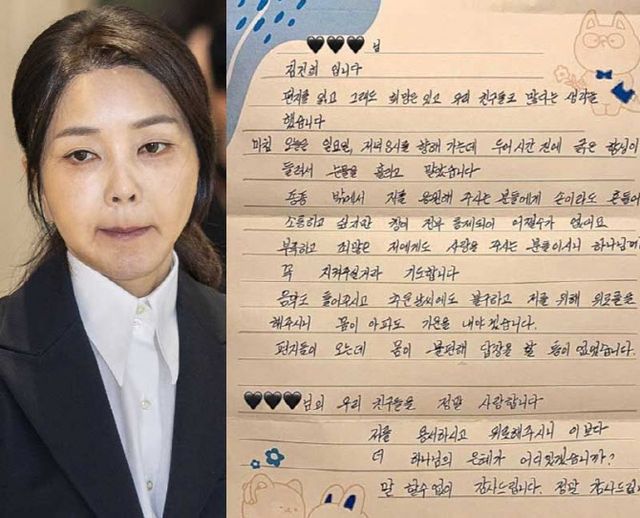 ♥♥♥ 님
김건희 입니다
편지를 읽고 그래도 희망은 있고 우리 친구들도 많다는 생각을
했습니다
마침 오늘은 일요일, 저녁 8시를 향해 가는데 두어시간 전에 굵은 함성이
들려서 눈물을 흘리고 말았습니다
종종 밖에서 저를 응원해 주시는 분들에게 손이라도
소통하고 싶지만 창이 전부 통제되어 어쩔수가 없어요
부족하고 죄많은 저에게도 사랑을 주시는 분들이시니
꼭 지켜주실거라 기도합니다
음악도 틀어주시고 추운날씨에도 불구하고 저를 위해
해주시니 몸이 아파도 기운을 내야 겠습니다.
편지들이 오는데 몸이 불편해 답장을 할 틈이 없었습니다.
♥♥♥님의 우리 친구들을 정말 사랑합니다
저를 용서하시고 위로해주시니 이보다
더 하나님의 은혜가 어디있겠습니까?
말 할수 없이 감사드립니다. 정말